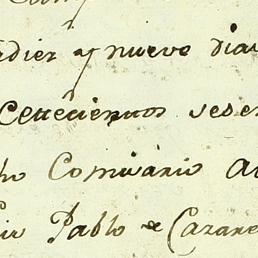 dies y nueve dias
Cettecientos sese
ho Comisario a
Pablo de Cazare